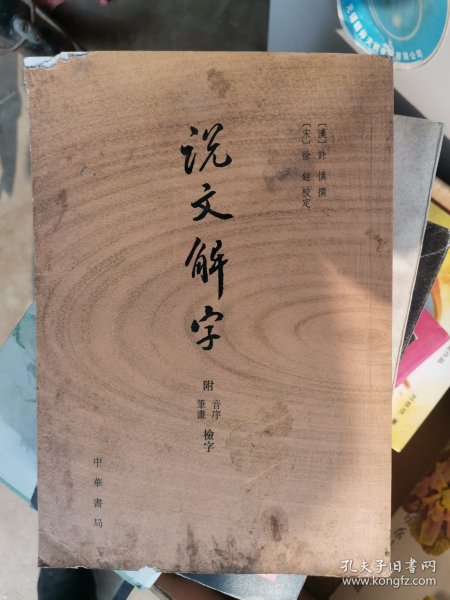 [漢] 許慎撰
[宋] 徐鉉校定
说文解字
附 音序 筆畫 檢字
中華書局
孔夫子旧书网
www.kongfz.com